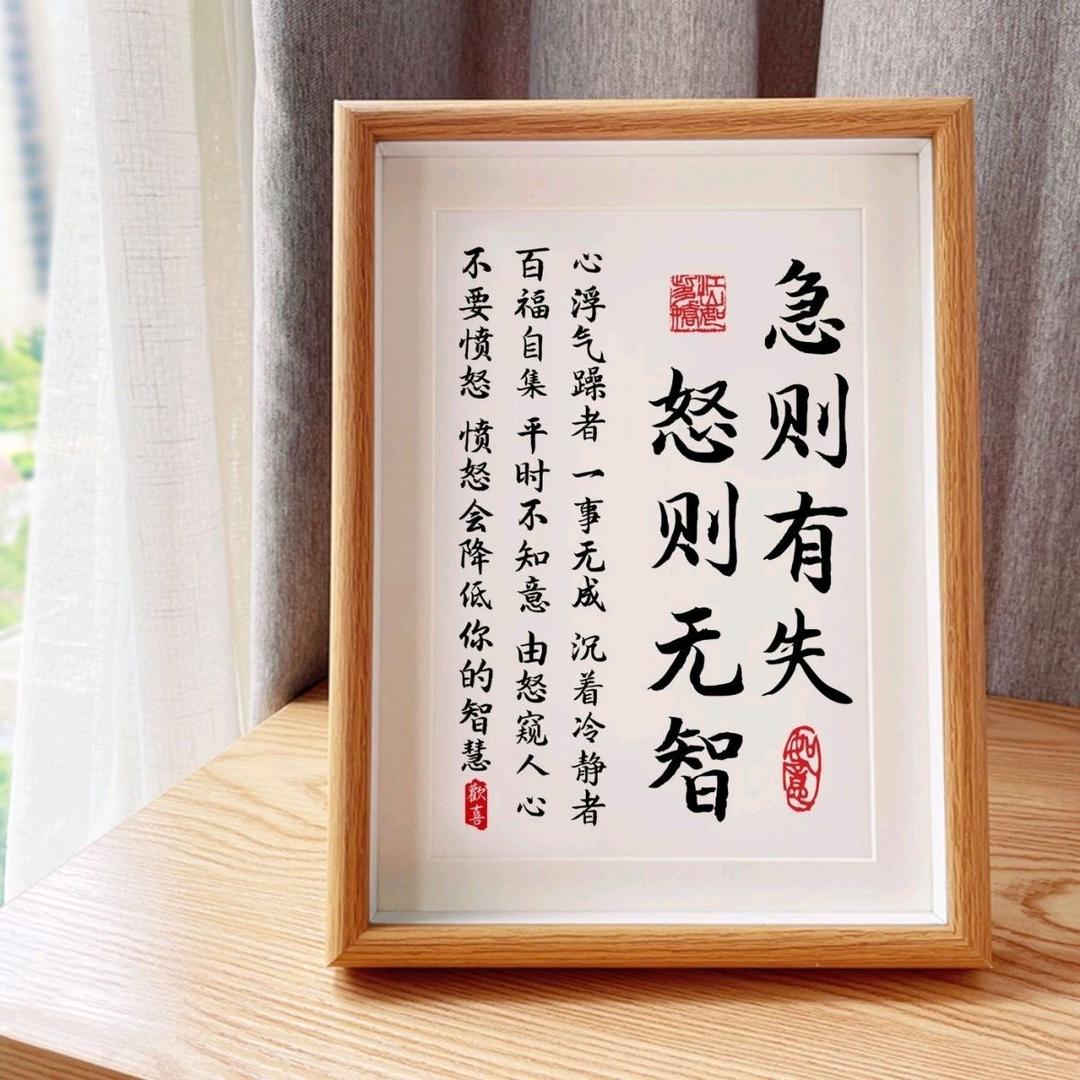 急则有失
如意
怒则无智
心浮气躁者 一事无成 沉着冷静者
百福自集 平时不知意 由怒窥人心
不要愤怒 愤怒会降低你的智慧
歡喜